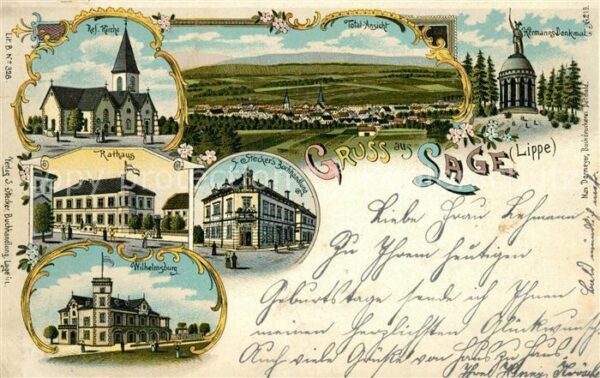 Ref. Kirche
Total-Ansicht
Hermanns-Denkmal
Rathaus
S. Stecker's Buchhandlung
Gruss aus Lage (Lippe)
Wilhelmsburg
Lit. B. No 328.
Verlag S. Stecker Buchhandlung Lage i/L
Liebe Frau Lehmann
Zu Ihrem heutigen
Geburtstage sende ich Ihnen
meinen herzlichsten Glückwunsch
Auch viele Grüße von Haus zu Haus